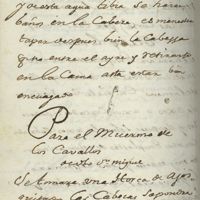 y de esta agua tibia se haran
baños en la Cabeza, es menester
tapar despues bien la Cabessa
q no entre el ayre y retirarse
en la Cama asta estar bien
enjugado
Para el Muermo de
los Cavallos
de
Se tomara una Horca de Ajos
las Cabezas